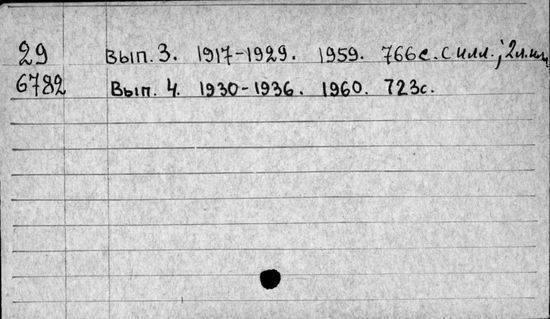 29 Вып. 3. 1917-1929. 1959. 766с. с илл.; 2л. илл.
6782 Вып. 4. 1930-1936. 1960. 723с.